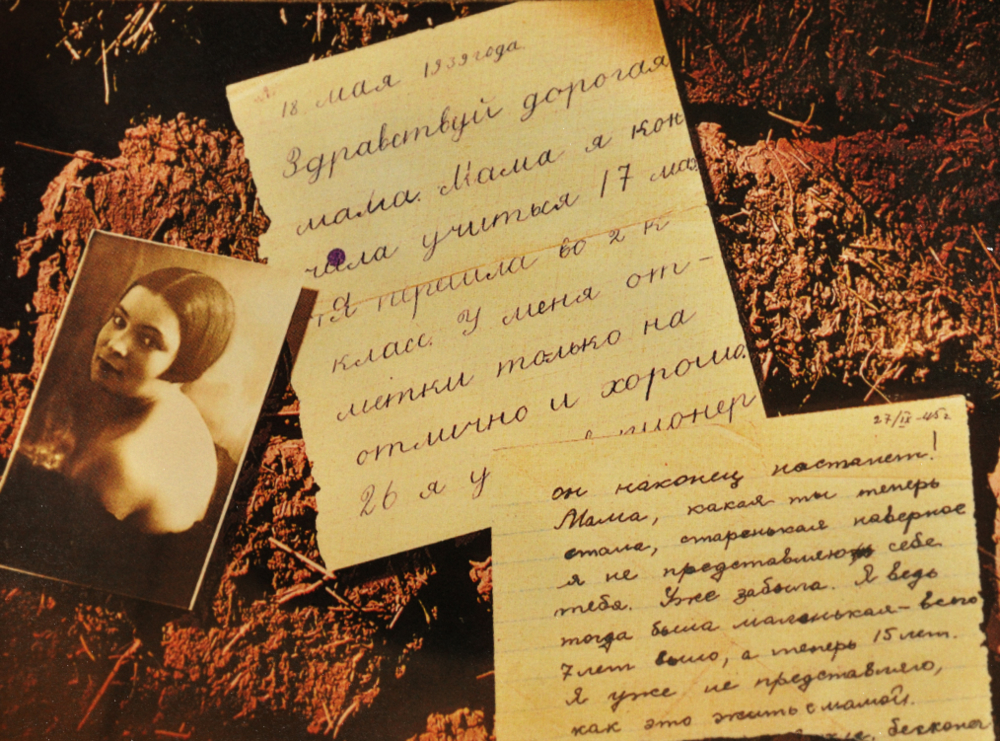 18 мая 1939 года.
Здравствуй дорогая
мама. Мама я кон
чила учиться 17 мая
Я перешла во 2 к
класс. У меня от-
метки только на
отлично и хорошо.
26 я у пионер
27/IX-45г.
он наконец настанет!
Мама, какая ты теперь
стала, старенькая наверное
я не представляю себе
тебя. Уже забыла. Я ведь
тогда была маленькая - всего
7 лет было, а теперь 15 лет.
Я уже не представляю,
как это жить с мамой.
бесконеч